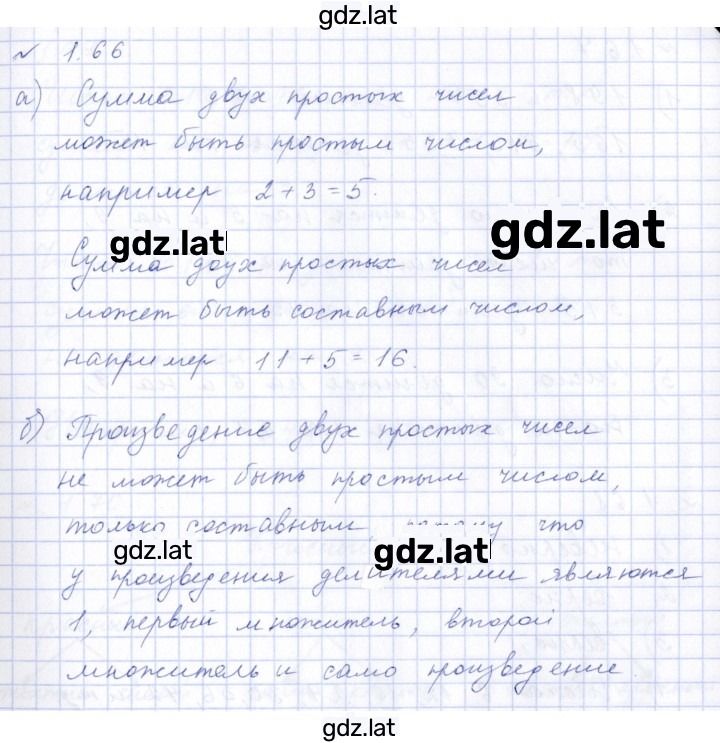 gdz.lat
№ 1.66
а) Сумма двух простых чисел
может быть простым числом,
например 2+3=5.
gdz.lat
gdz.lat
Сумма двух простых чисел
может быть составным числом,
например 11+5=16.
б) Произведение двух простых чисел
не может быть простым числом,
только составным, что
gdz.lat
gdz.lat
у произведения делителями являются
1, первый множитель, второй
множитель и само произведение.
gdz.lat